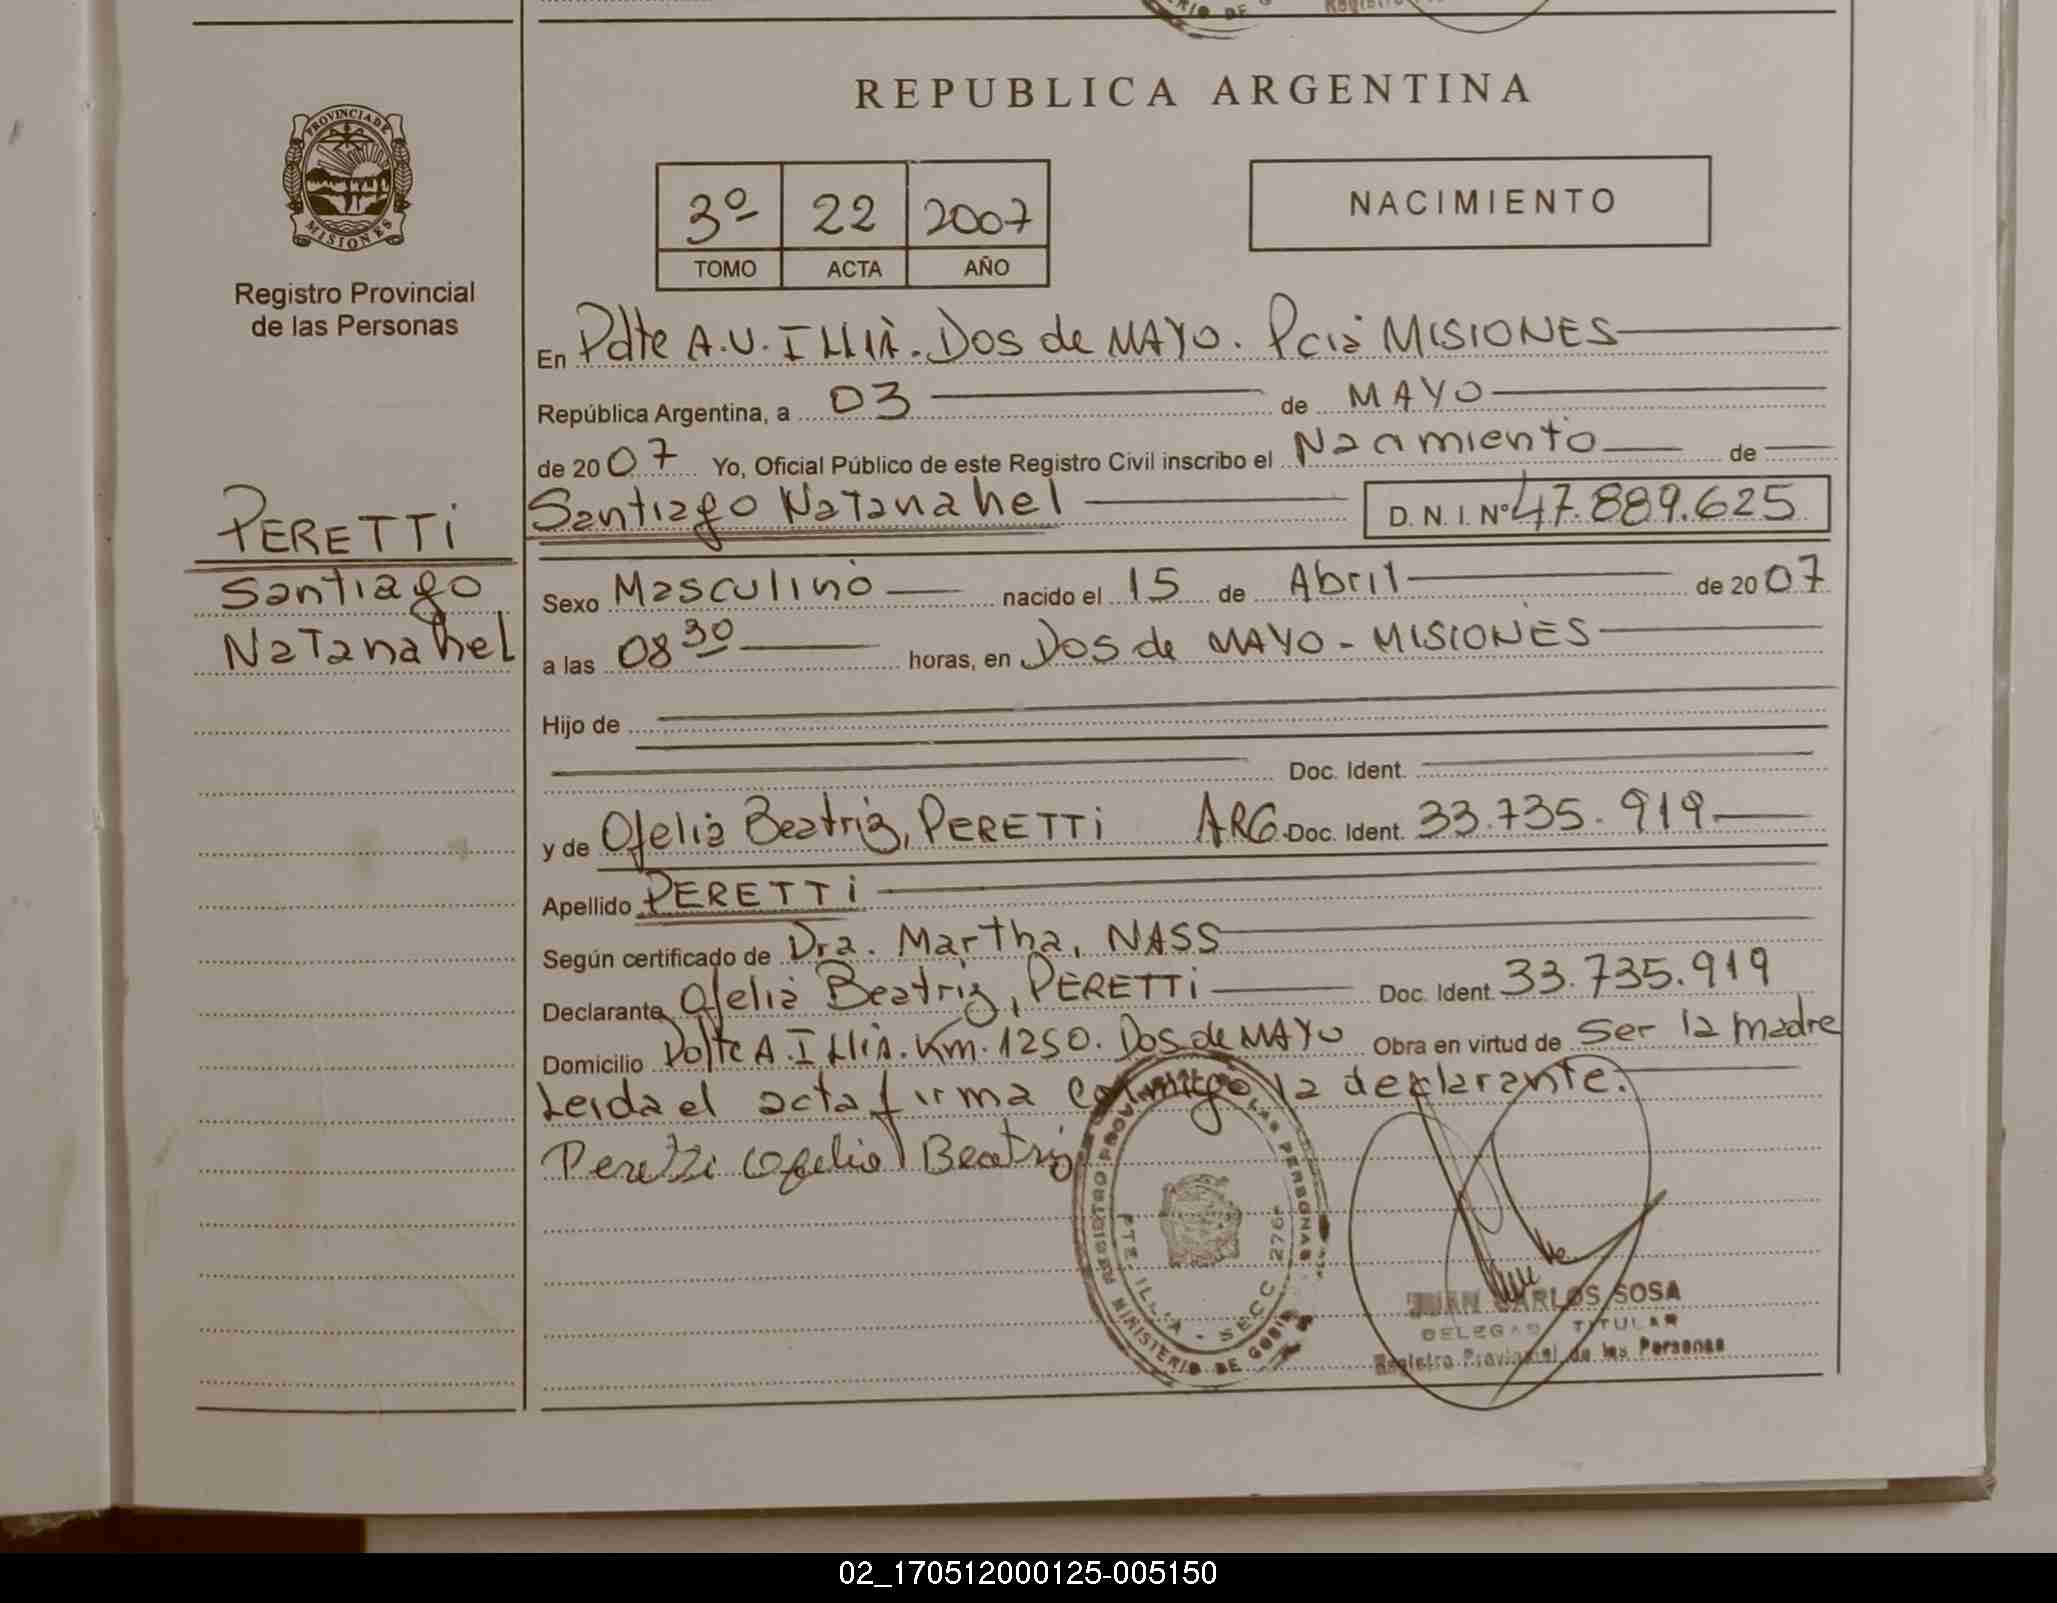 REPUBLICA ARGENTINA
PROVINCIA DE
MISIONES
Registro Provincial
de las Personas
3º 22 2007
TOMO ACTA AÑO
NACIMIENTO
En Pdte A.U. Illia. Dos de MAYO. Pcia MISIONES
República Argentina, a 03 de MAYO
de 2007 Yo, Oficial Público de este Registro Civil inscribo el Nacimiento de
Santiago Natanahel D. N. I. Nº 47.889.625
PERETTi
Santiago
Natanahel
Sexo Masculino nacido el 15 de Abril de 2007
a las 08 30 horas, en Dos de MAYO - MISIONES
Hijo de
Doc. Ident.
y de Ofelia Beatriz, PERETTi ARG. Doc. Ident. 33.735.919
Apellido PERETTi
Según certificado de Dra. Martha, NASS
Declarante Ofelia Beatriz, PERETTi Doc. Ident. 33.735.919
Domicilio Pdte A. Illia. Km. 1250. Dos de MAYO Obra en virtud de Ser la madre
Leida el acta firma conmigo la declarante.
Peretti Ofelia Beatriz
REGISTRO PROVINCIAL DE LAS PERSONAS
MINISTERIO DE GOBIE
PTE. ILLIA - SECC 276
JUAN CARLOS SOSA
DELEGADO TITULAR
Registro Provincial de las Personas
02_170512000125-005150